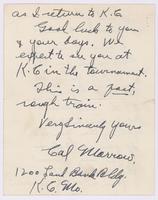 as I return to K.C
Good luck to you
& your boys. We
expect to see you at
K.C in the tournament.
This is a fast,
rough train.
Very Sincerely Yours
Cal Morrow.
1200 Land Bank Bldg.
K.C. Mo.